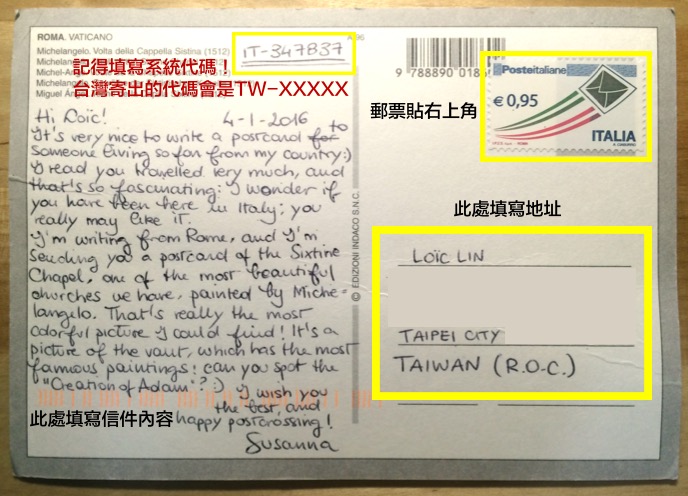 ROMA. VATICANO
Michelangelo. Volta della Cappella Sistina (1512)
Michelangelo.
Michelangelo
Michel-Ang
Michelange
Miguel Án
IT-347837
記得填寫系統代碼！
台灣寄出的代碼會是TW-XXXXX
A 96
9 788890 018
郵票貼右上角
Posteitaliane
€ 0,95
ITALIA
Hi Loïc! 4-1-2016
It's very nice to write a postcard for to
someone living so far from my country:)
I read you travelled very much, and
that's so fascinating: I wonder if
you have been here in Italy: you
really may like it.
I'm writing from Rome, and I'm
sending you a postcard of the Sixtine
Chapel, one of the most beautiful
churches we have, painted by Miche-
langelo. That's really the most
colorful picture I could find! It's a
picture of the vault, which has the most
famous paintings: can you spot the
"Creation of Adam"? :) I wish you
the best, and
happy postcrossing!
Susanna
此處填寫信件內容
© EDIZIONI INDACO S.N.C.
此處填寫地址
LOÏC LIN
TAIPEI CITY
TAIWAN (R.O.C.)